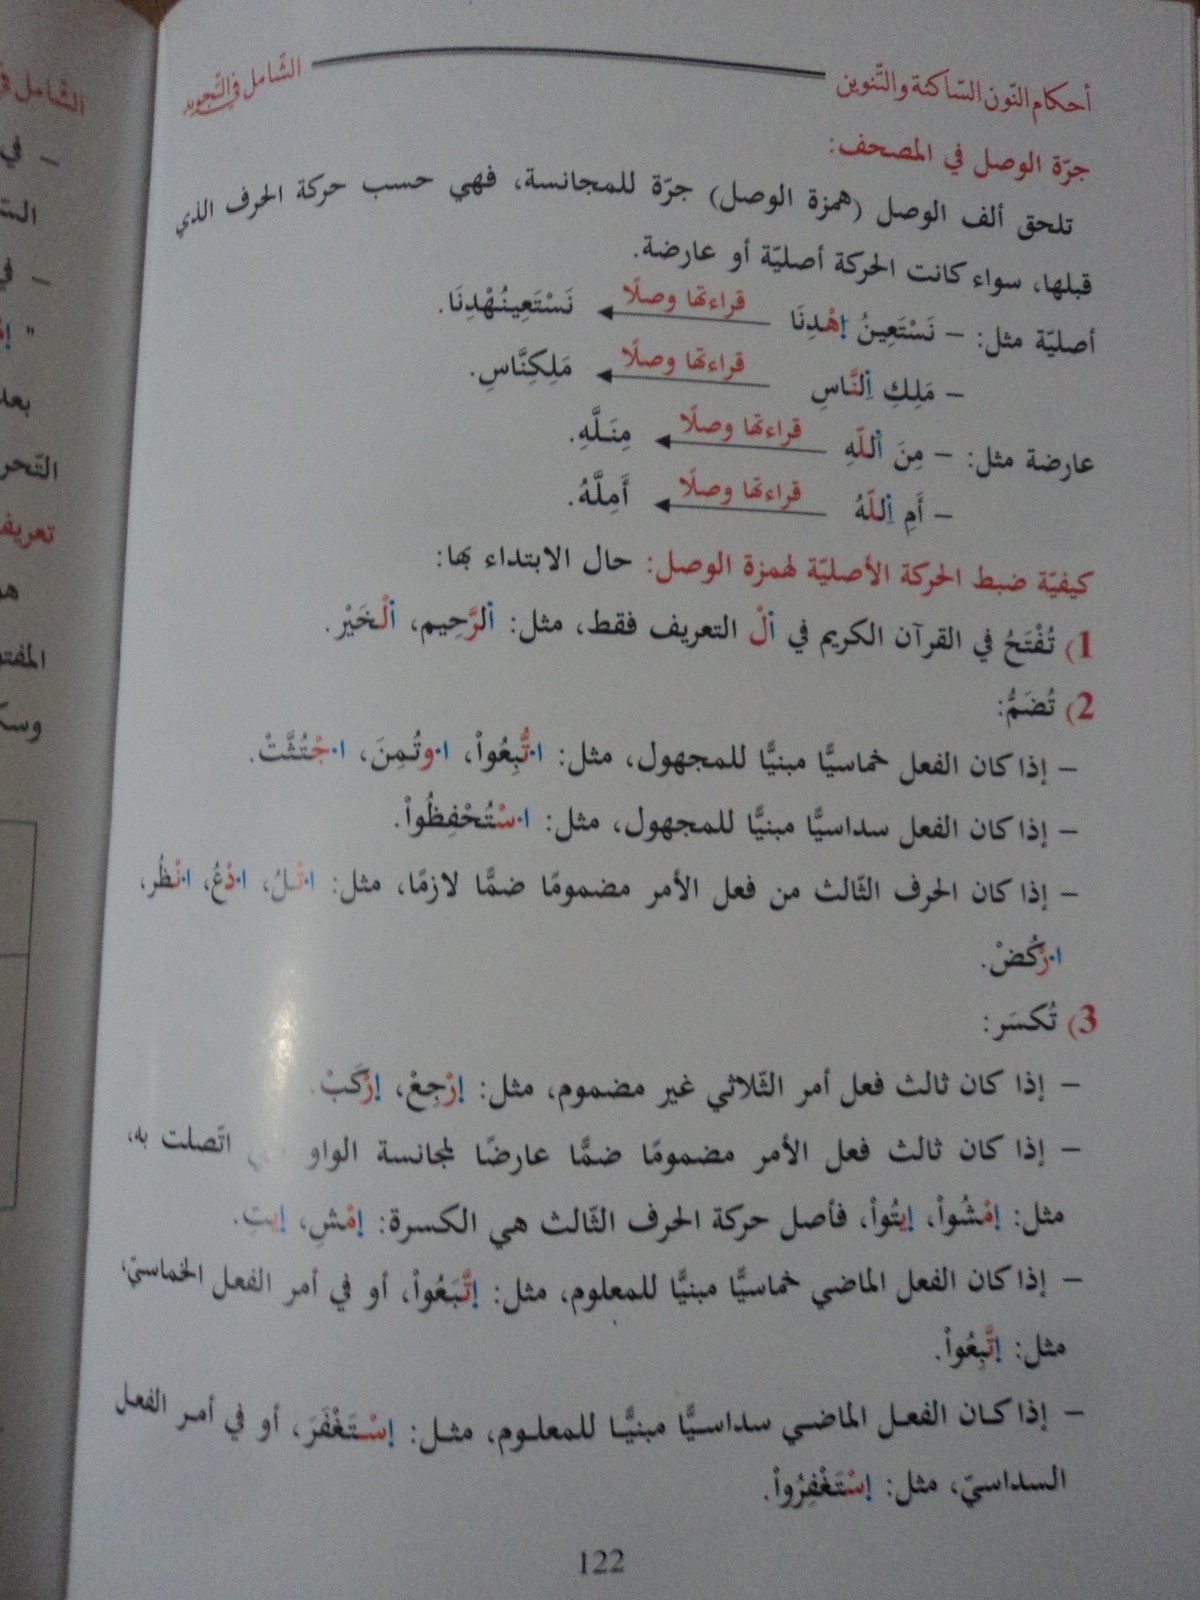 أحكام النّون السّاكنة والتّنوين الشّامل في التّجويد
جرّة الوصل في المصحف:
تلحق ألف الوصل (همزة الوصل) جرّة للمجانسة، فهي حسب حركة الحرف الذي
قبلها، سواء كانت الحركة أصليّة أو عارضة.
أصليّة مثل: – نَسْتَعِينُ اِهْدِنَا قراءتها وصلًا نَسْتَعِينُهْدِنَا.
– مَلِكِ اِلنَّاسِ قراءتها وصلًا مَلِكِنَّاسِ.
عارضة مثل: – مِنَ اَللَّهِ قراءتها وصلًا مِنَلَّهِ.
– أَمِ اِللَّهُ قراءتها وصلًا أَمِلَّهُ.
كيفيّة ضبط الحركة الأصليّة لهمزة الوصل: حال الابتداء بها:
1) تُفْتَحُ في القرآن الكريم في اَلْ التعريف فقط، مثل: اَلرَّحِيم، اَلْخَيْر.
2) تُضَمُّ:
– إذا كان الفعل خماسيًّا مبنيًّا للمجهول، مثل: اتُّبِعُواْ، اوتُمِنَ، اجْتُثَّتْ.
– إذا كان الفعل سداسيًّا مبنيًّا للمجهول، مثل: اسْتُحْفِظُواْ.
– إذا كان الحرف الثّالث من فعل الأمر مضمومًا ضمًّا لازمًا، مثل: اتْلُ، ادْعُ، انْظُر،
ارْكُضْ.
3) تُكسَر:
– إذا كان ثالث فعل أمر الثّلاثي غير مضموم، مثل: اِرْجِعْ، اِرْكَبْ.
– إذا كان ثالث فعل الأمر مضمومًا ضمًّا عارضًا لمجانسة الواو اتّصلت به،
مثل: اِمْشُواْ، اِيتُواْ، فأصل حركة الحرف الثّالث هي الكسرة: اِمْشِ، اِيتِ.
– إذا كان الفعل الماضي خماسيًّا مبنيًّا للمعلوم، مثل: اِتَّبَعُواْ، أو في أمر الفعل الخماسيّ،
مثل: اِتَّبِعُواْ.
– إذا كان الفعل الماضي سداسيًّا مبنيًّا للمعلوم، مثل: اِسْتَغْفَرَ، أو في أمر الفعل
السداسيّ، مثل: اِسْتَغْفِرُواْ.
122
الشّامل
– في
– في
بعد
التّحر
وسك